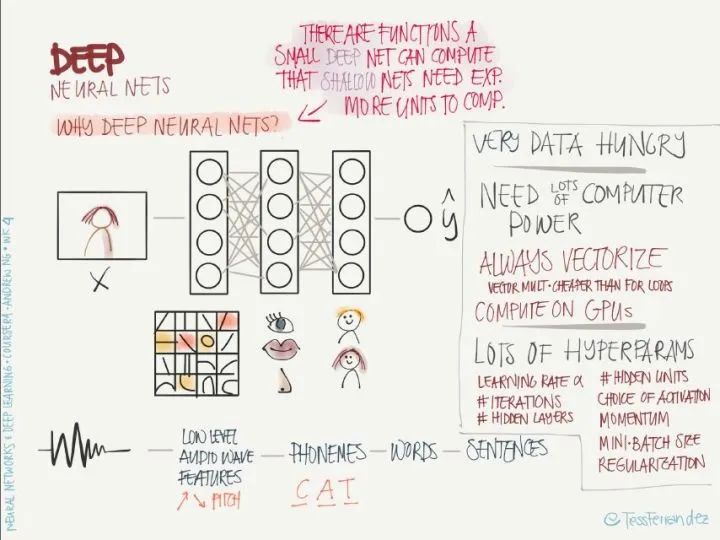 DEEP
NEURAL NETS
WHY DEEP NEURAL NETS?
THERE ARE FUNCTIONS A
SMALL DEEP NET CAN COMPUTE
THAT SHALLOW NETS NEED EXP.
MORE UNITS TO COMP.
X
ŷ
VERY DATA HUNGRY
NEED LOTS OF COMPUTER
POWER
ALWAYS VECTORIZE
VECTOR MULT. CHEAPER THAN FOR LOOPS
COMPUTE ON GPUs
LOTS OF HYPERPARAMS
LEARNING RATE α
# ITERATIONS
# HIDDEN LAYERS
# HIDDEN UNITS
CHOICE OF ACTIVATION
MOMENTUM
MINI-BATCH SIZE
REGULARIZATION
LOW LEVEL
AUDIO WAVE
FEATURES
PITCH
PHONEMES
C A T
WORDS
SENTENCES
NEURAL NETWORKS & DEEP LEARNING · COURSERA · ANDREW NG · WK 4
@TessFerrandez